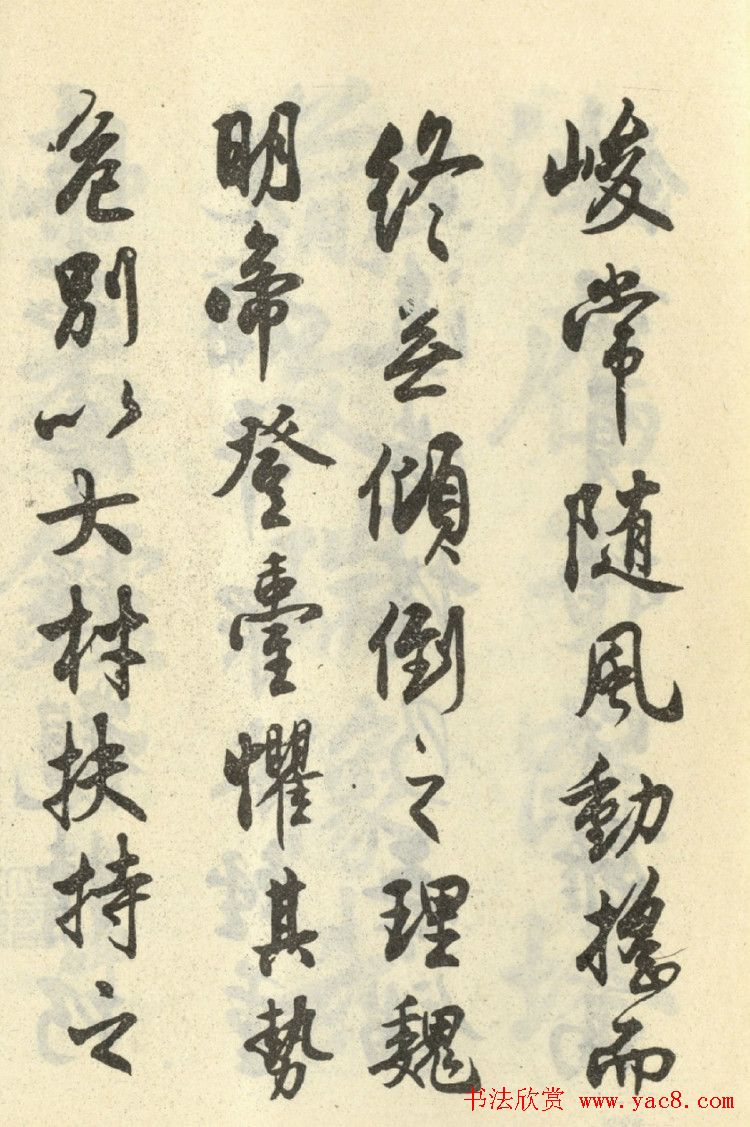 峻常随風動搖而
終無傾倒之理魏
明帝登臺懼其勢
危別以大材扶持之
书法欣赏 www.yac8.com